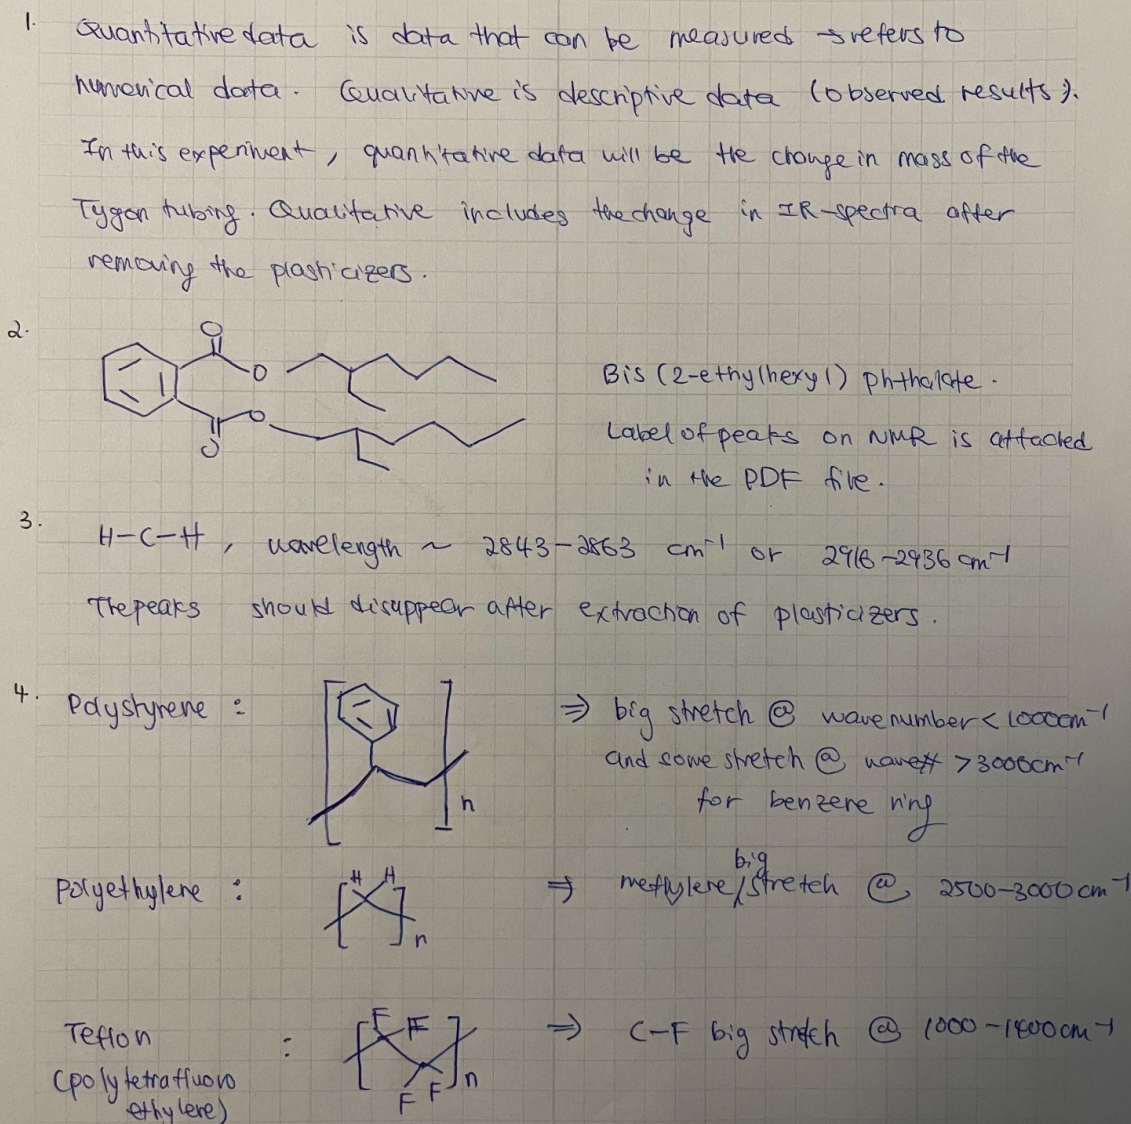 1. Quantitative data is data that can be measured → refers to
numerical data. Qualitative is descriptive data (observed results).
In this experiment, quantitative data will be the change in mass of the
Tygon tubing. Qualitative includes the change in IR-spectra after
removing the plasticizers.
2.
O
O
O
O
Bis (2-ethylhexyl) phthalate.
Label of peaks on NMR is attached
in the PDF file.
3. H-C-H, wavelength ~ 2843-2863 cm⁻¹ or 2916-2936 cm⁻¹
The peaks should disappear after extraction of plasticizers.
4. Polystyrene : n ⇒ big stretch @ wavenumber < 1000cm⁻¹
and some stretch @ wave# > 3000cm⁻¹
for benzene ring
Polyethylene : H H n ⇒ methylene big stretch @ 2500-3000 cm⁻¹
Teflon : F F F F n ⇒ C-F big stretch @ 1000-1400cm⁻¹
(polytetrafluoro
ethylene)